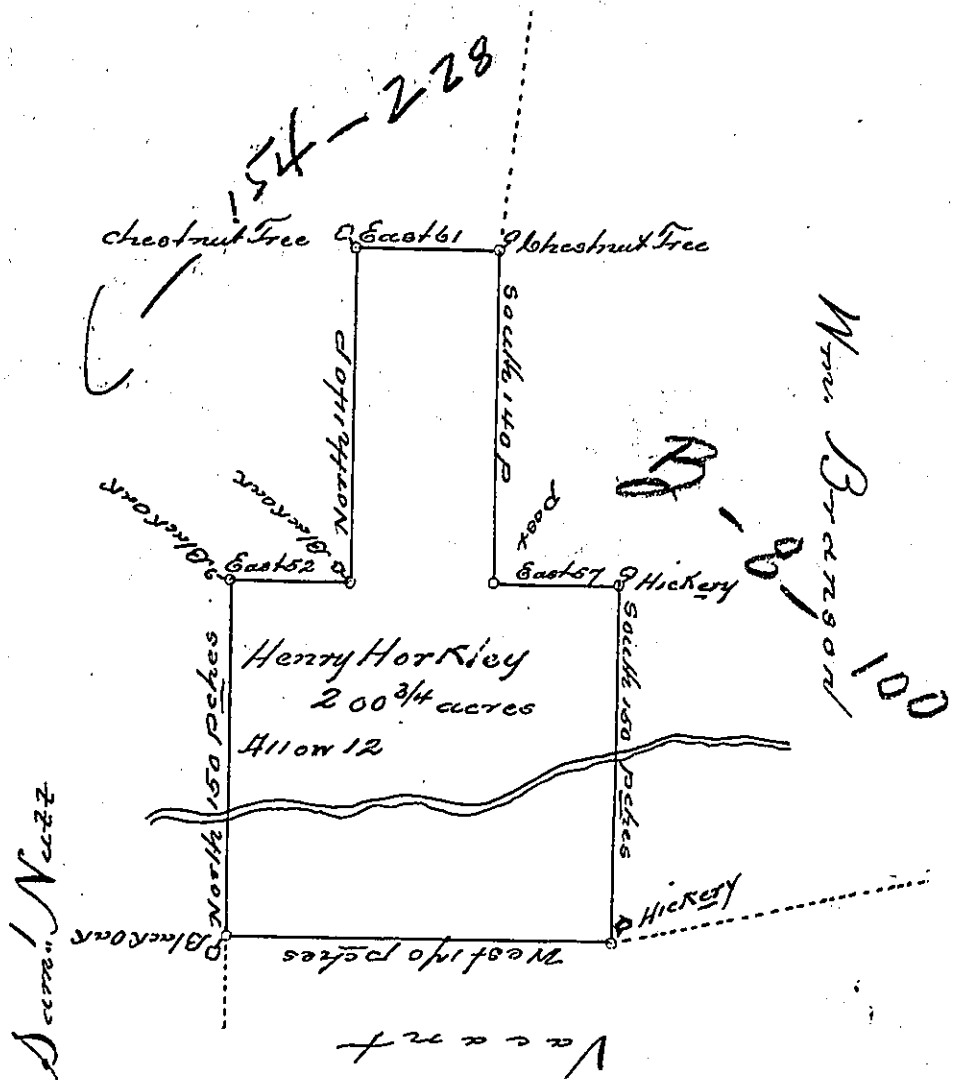 C 154-228
chestnut Tree
East 61
Chestnut Tree
North 140 P
South 140 P
Wm. Branson
Black Oak
Black Oak
Post
East 52
East 57
Hickery
Henry Horkley
200 3/4 acres
Allow 12
North 150 Pches
South 150 Pches
Sam'l Nutt
Black Oak
West 170 pches
Hickery
Vacant